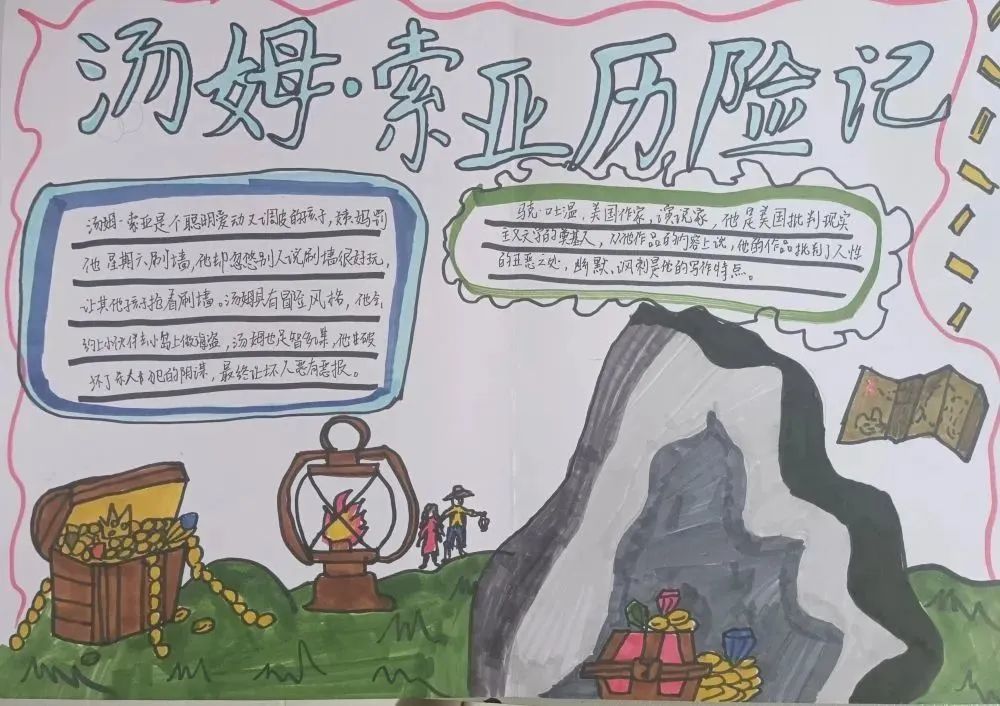 汤姆·索亚历险记
汤姆·索亚是个聪明爱动又调皮的孩子,姨妈罚
他星期六刷墙,他却忽悠别人说刷墙很好玩,
让其他孩子抢着刷墙。汤姆具有冒险风格,他会
约上小伙伴去小岛上做海盗,汤姆也足智多谋,他
坏了杀人犯的阴谋,最终让坏人恶有恶报。
马克·吐温,美国作家,演说家,他是美国批判现实
主义文学的奠基人,从他作品的内容上说,他的作品批判了人性
的丑恶之处,幽默、讽刺是他的写作特点。